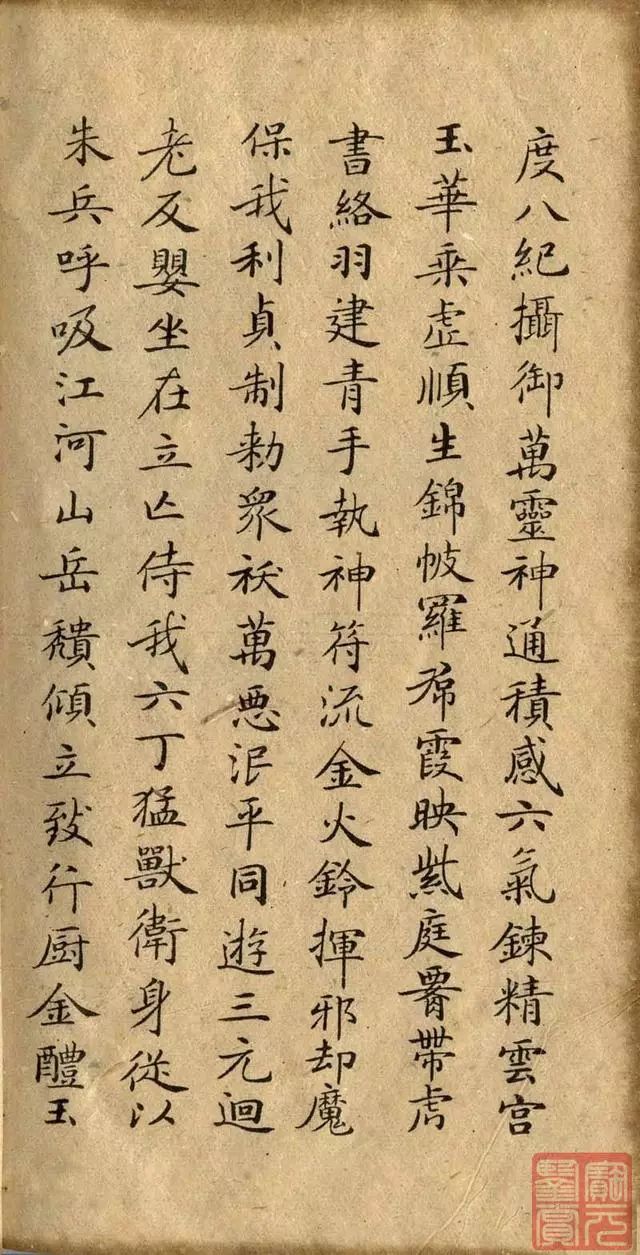 度八紀攝御萬靈神通積感六氣鍊精雲宮
玉華乘虛順生錦帔羅帬霞映紫庭腎帶虎
書絡羽建青手執神符流金火鈴揮邪却魔
保我利貞制勑衆祅萬惡泯平同遊三元迴
老反嬰坐在立亡侍我六丁猛獸衛身從以
朱兵呼吸江河山岳頹傾立致行厨金醴玉